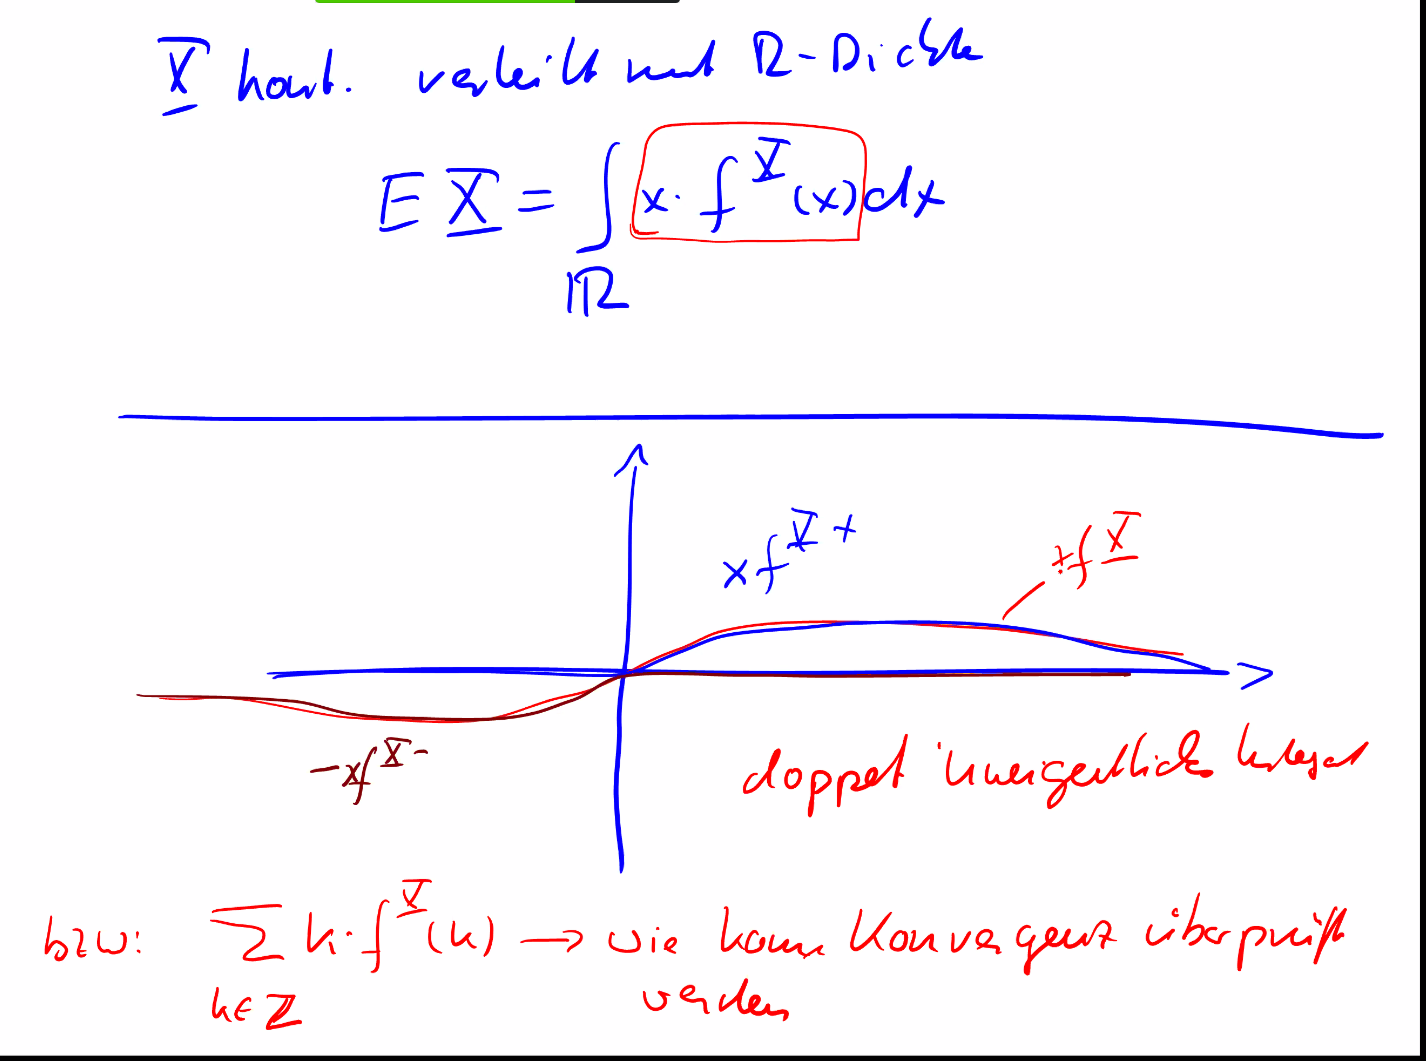 X kont. verteilt mit R-Dichte
E X = ∫ x · f^X (x) dx
ℝ
x f^X +
x f^X
- x f^X -
doppelt uneigentliches Integral
bzw: ∑ k · f^X (k) → wie kann Konvergenz überprüft
k ∈ ℤ werden